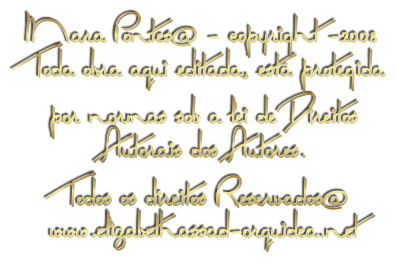 Mara Pontes@ - copyright -2008
Toda obra aqui editada, está protegida
por normas sob a lei de Direitos
Autorais dos Autores.
Todos os direitos Reservados@
www.elizabethassad-orquidea.net